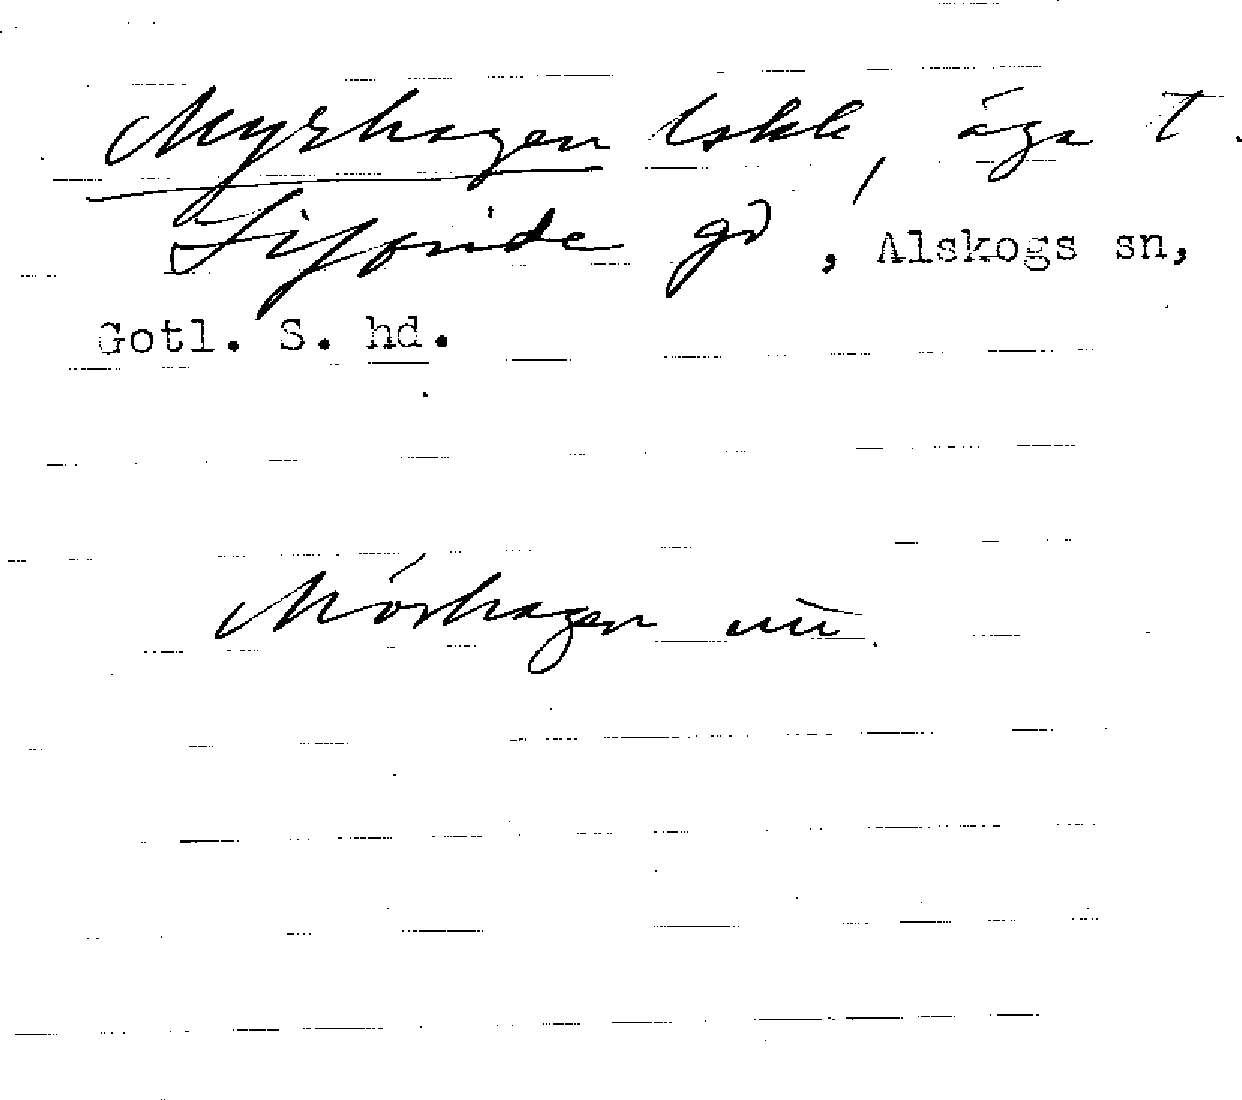 Myrhagen lskk, äga t.
Liffride gd, Alskogs sn,
Gotl. S. hd.
Mórhagen